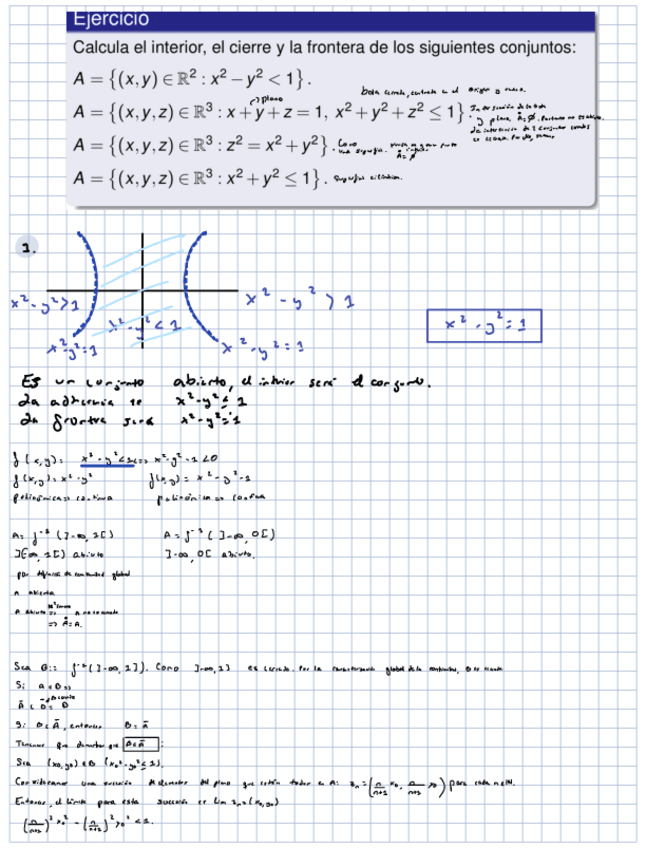 Ejercicio
Calcula el interior, el cierre y la frontera de los siguientes conjuntos:
A = {(x, y) ∈ ℝ² : x² − y² < 1}.
bola cerrada, centrada en el origen
plano
A = {(x, y, z) ∈ ℝ³ : x + y + z = 1, x² + y² + z² ≤ 1}.
A = {(x, y, z) ∈ ℝ³ : z² = x² + y²}. Cono
A = {(x, y, z) ∈ ℝ³ : x² + y² ≤ 1}.
1.
x² - y² > 1
x² - y² < 1
x² - y² > 1
x² - y² = 1
x² - y² = 1
x² - y² = 1
Es un conjunto abierto, el interior será el conjunto.
La adherencia x² - y² ≤ 1
La frontera será x² - y² = 1
f(x,y) = x² - y² < 1 <=> x² - y² - 1 < 0
f(x,y) = x² - y² f(x,y) = x² - y² - 1
polinómica => continua polinómica => continua
A = f⁻¹(]-∞, 1[) A = f⁻¹(]-∞, 0[)
]-∞, 1[) abierto ]-∞, 0[ abierto.
por definición de continuidad global
A abierto
A abierto => A
=> Å = A.
Sea B := f⁻¹(]-∞, 1]). Como ]-∞, 1] es cerrado. Por la caracterización global de la continuidad, B es cerrado
Si A ⊂ B =>
Ā ⊂ B̄ = B
Si B ⊂ Ā, entonces B = Ā
Tenemos que demostrar que B ⊂ Ā :
Sea (x₀, y₀) ∈ B (x₀² - y₀² ≤ 1).
Consideramos una sucesión de elementos del plano que están todos en A: zₙ = (n/(n+1) x₀, n/(n+1) y₀) para cada n ∈ ℕ.
Entonces, el límite para esta sucesión es lim zₙ = (x₀, y₀)
(n/(n+1))² x₀² - (n/(n+1))² y₀² < 1.